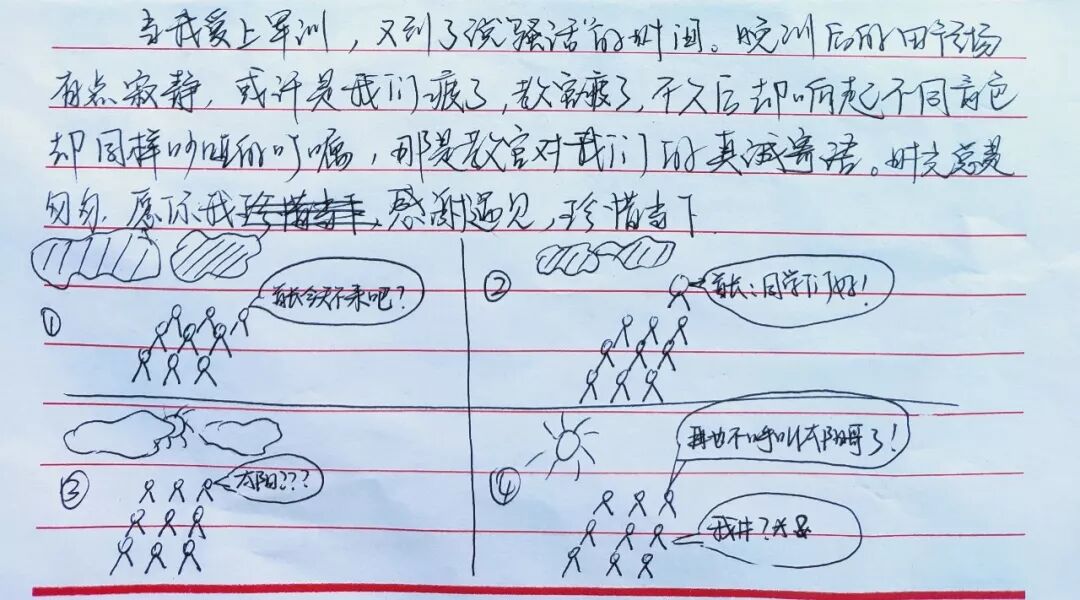 当我爱上军训，又到了说骚话的时间。晚训后的田径场
有点寂静，或许是我们疲了，教官疲了，不久后却响起不同音色
却同样吵哑的叮嘱，那是教官对我们的真诚寄语。时光总是
匆匆，愿你我珍惜当下，感谢遇见，珍惜当下
① 首长今天不来吧？
② 首长：同学们好！
③ 太阳？？？
④ 再也不呼叫太阳哥了！
我井？